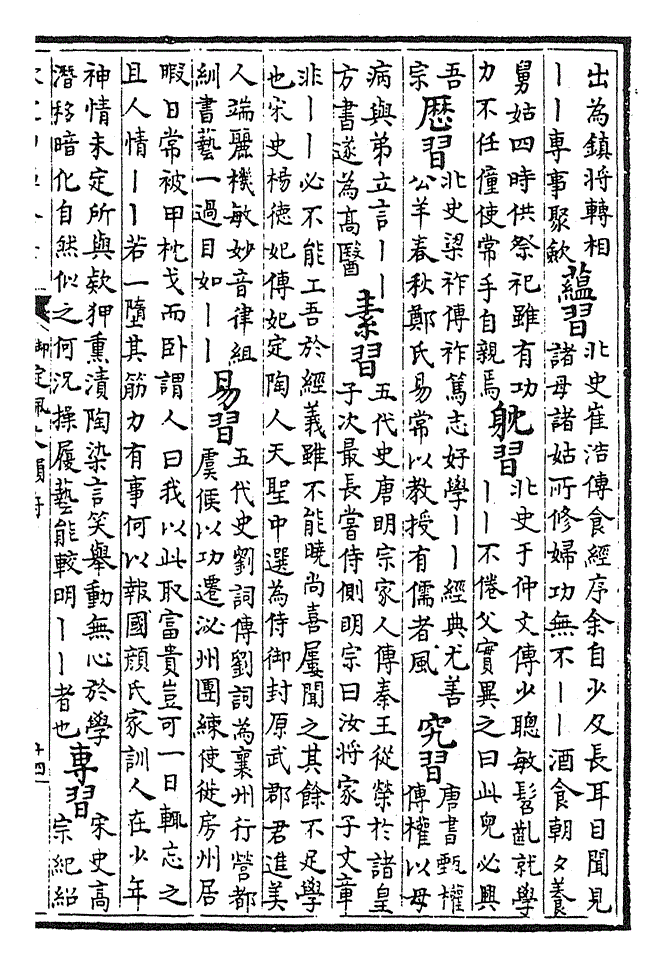 出為鎮將轉相
——專事聚歛
蘊習
北史崔浩傳食經序余自少及長耳目聞見
諸母諸姑所修婦功無不——酒食朝夕養
舅姑四時供祭祀雖有功
力不任僮使常手自親焉
躭習
北史于仲文傳少聰敏髫齔就學
——不倦父實異之曰此兒必興
吾
宗
歷習
北史梁祚傳祚篤志好學——經典尤善
公羊春秋鄭氏易常以教授有儒者風
究習
唐書甄權
傳權以母
病與弟立言——
方書遂為高醫
素習
五代史唐明宗家人傳秦王從榮於諸皇
子次最長嘗侍側明宗曰汝將家子文章
非——必不能工吾於經義雖不能曉尚喜屢聞之其餘不足學
也宋史楊德妃傳妃定陶人天聖中選為侍御封原武郡君進美
人端麗機敏妙音律組
紃書藝一過目如——
易習
五代史劉詞傳劉詞為襄州行營都
虞候以功遷泌州團練使徙房州居
暇日常被甲枕戈而臥謂人曰我以此取富貴豈可一日輒忘之
且人情——若一墮其筋力有事何以報國顔氏家訓人在少年
神情未定所與款狎熏漬陶染言笑舉動無心於學
潛移暗化自然似之何況操履藝能較明——者也
專習
宋史高
宗紀紹